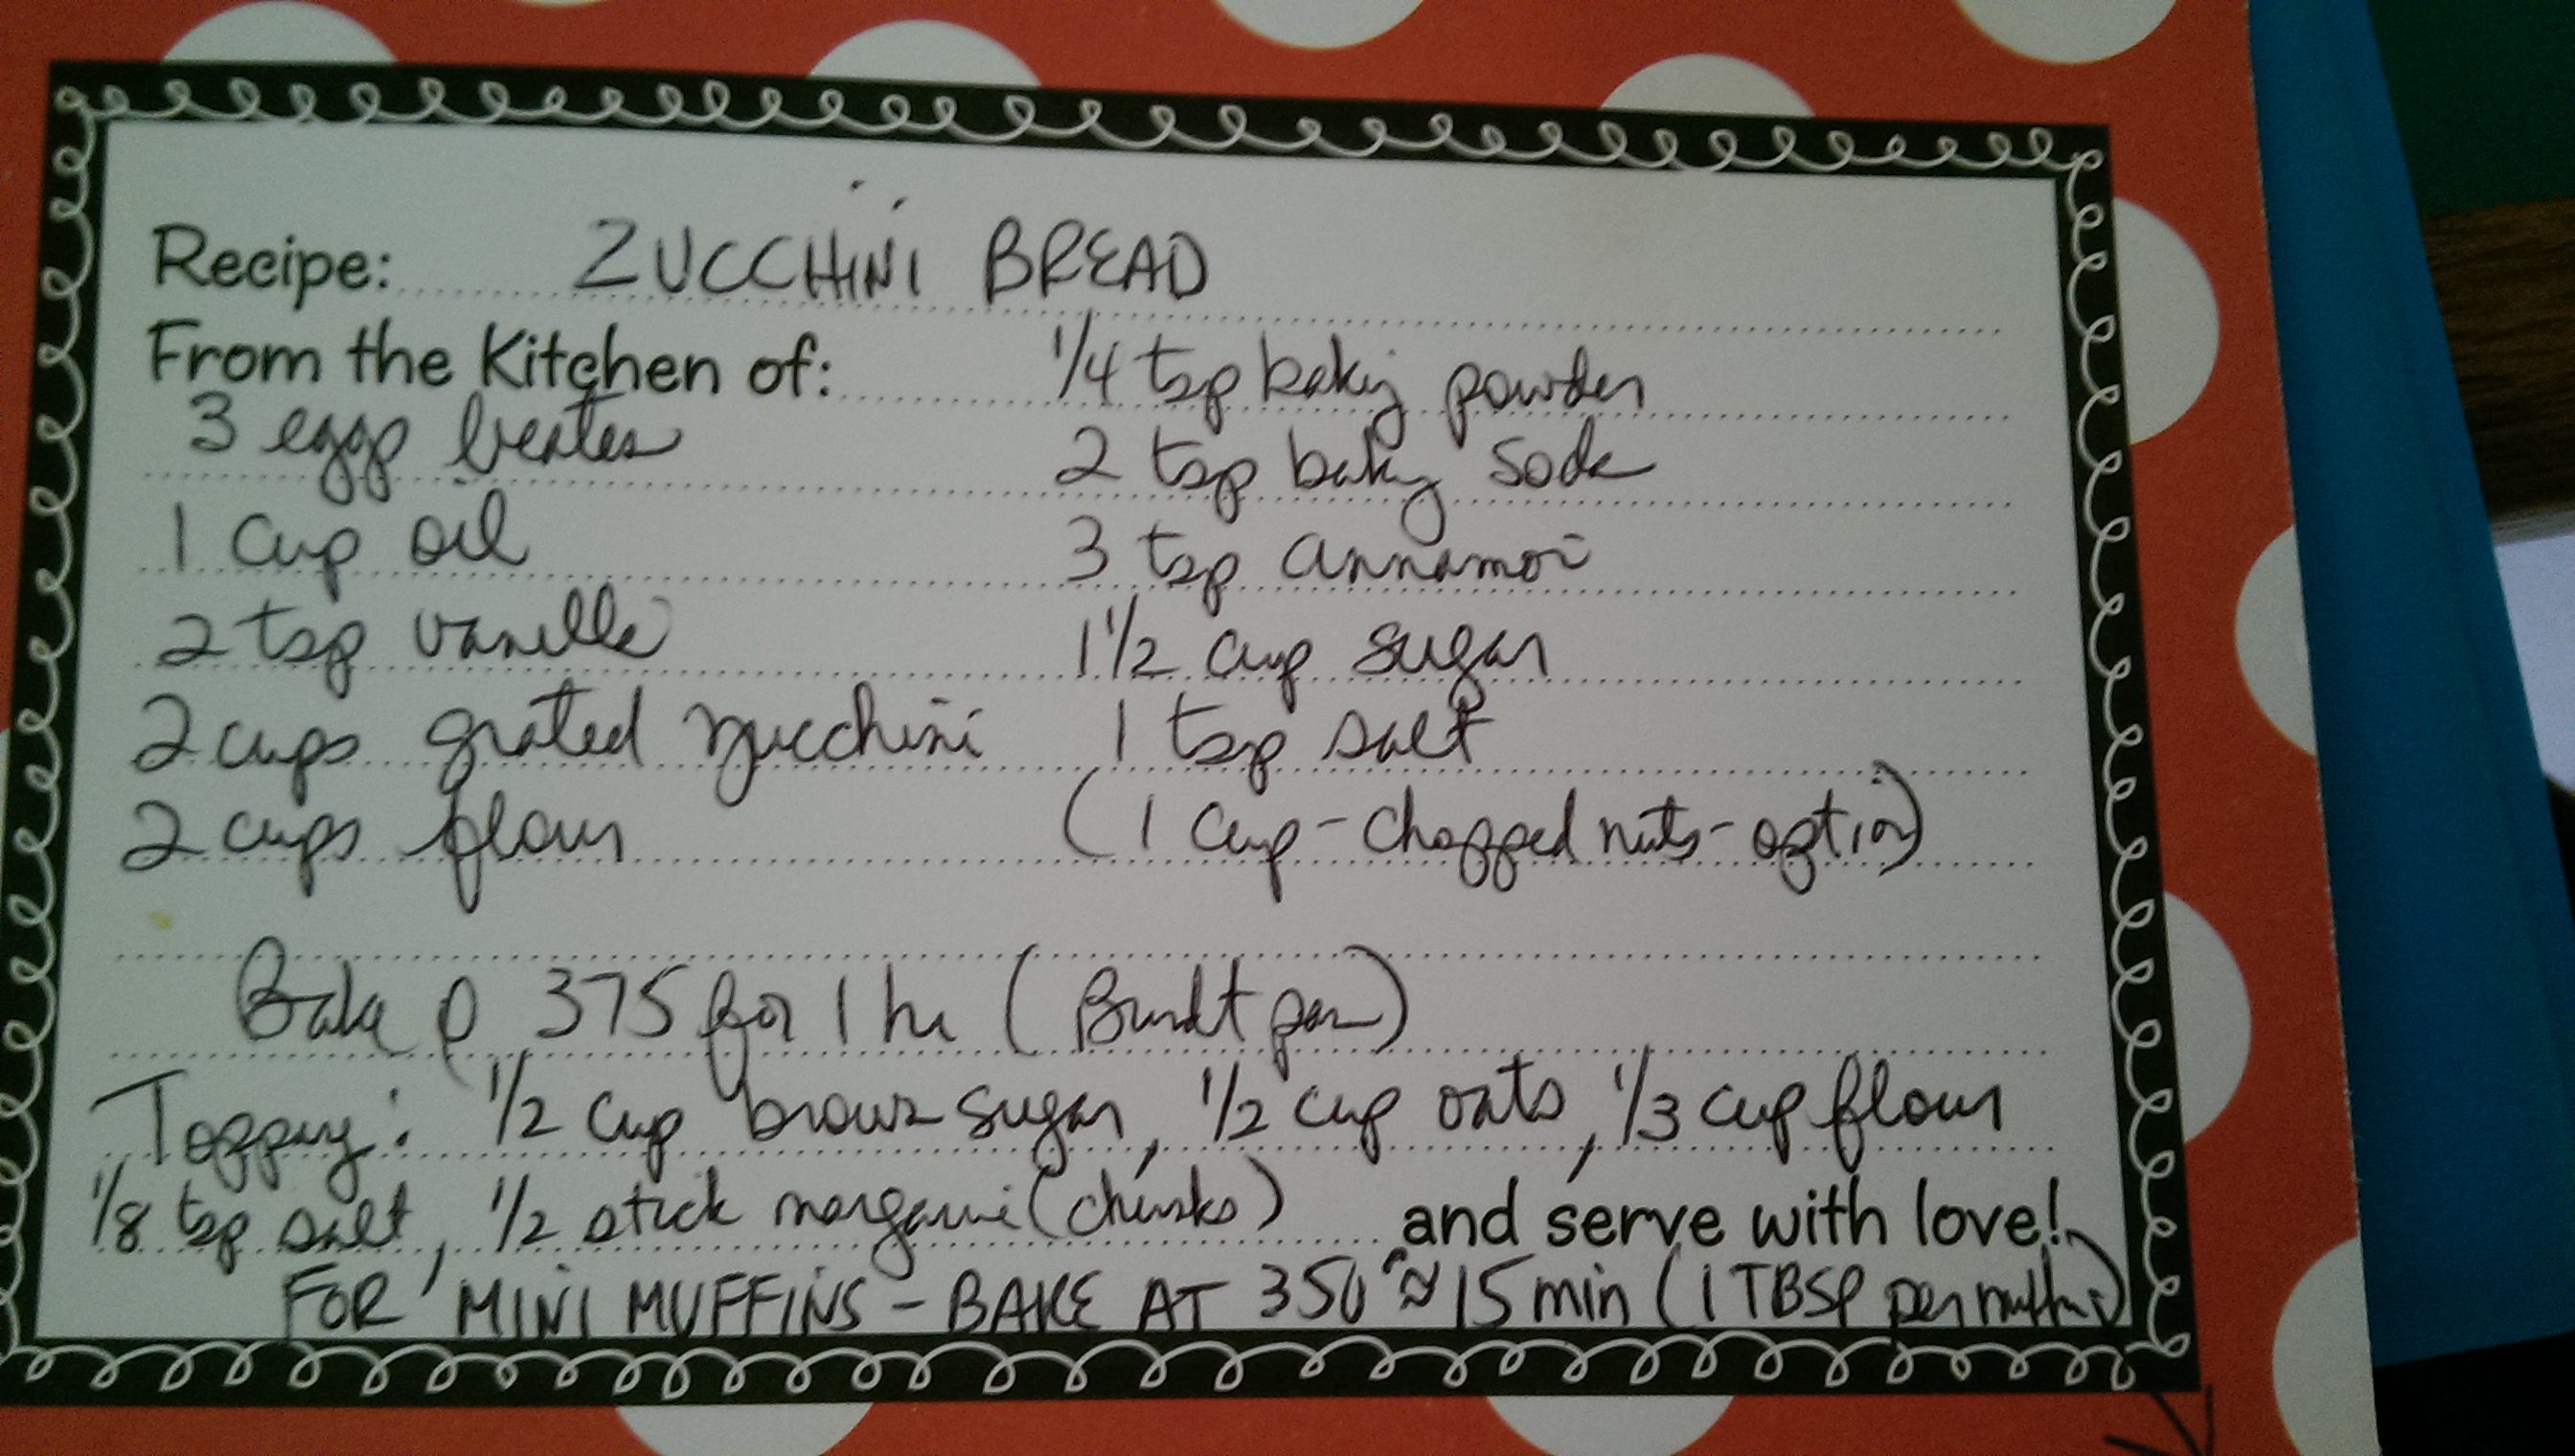 Recipe: ZUCCHINI BREAD
From the Kitchen of:
3 eggs beaten
1 cup oil
2 tsp vanilla
2 cups grated zucchini
2 cups flour
1/4 tsp baking powder
2 tsp baking soda
3 tsp cinnamon
1 1/2 cup sugar
1 tsp salt
(1 cup - chopped nuts - option)
Bake @ 375 for 1 hr (Bundt pan)
Topping: 1/2 cup brown sugar, 1/2 cup oats, 1/3 cup flour
1/8 tsp salt, 1/2 stick margarine (chunks) and serve with love!
FOR MINI MUFFINS - BAKE AT 350° ≈ 15 min (1 TBSP per muffin)